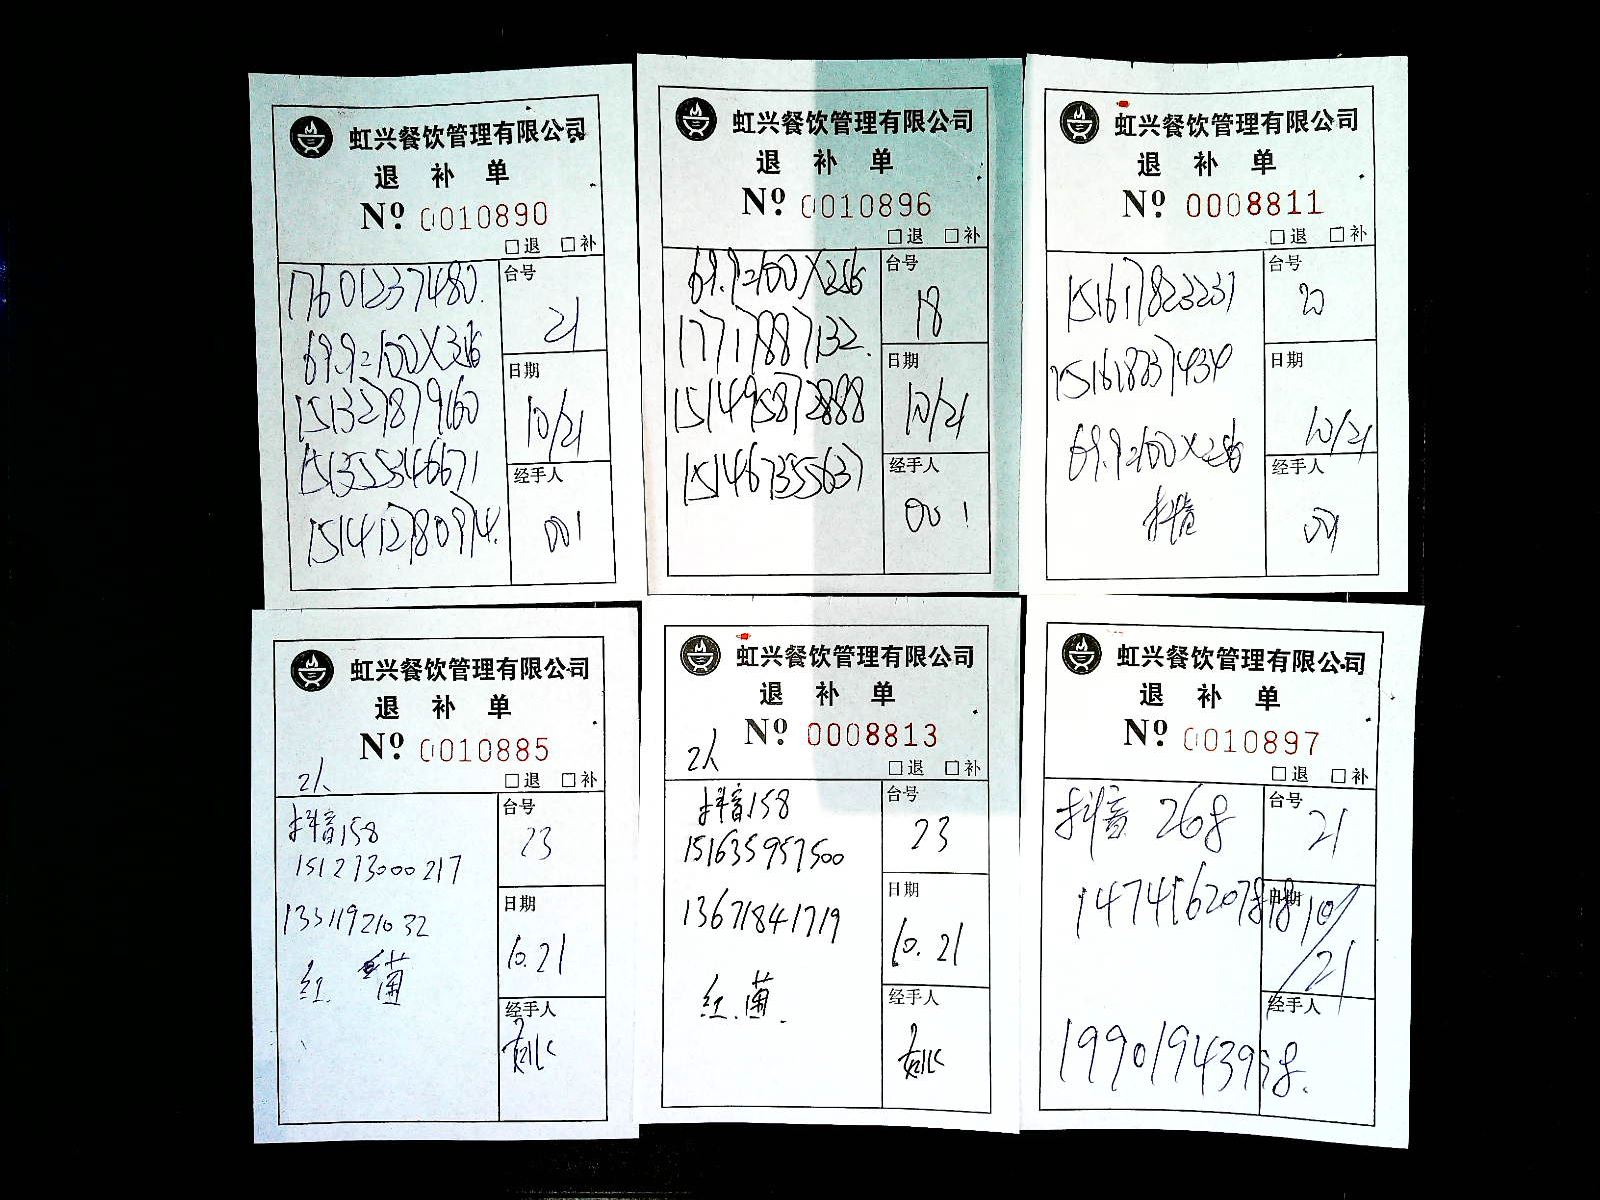 虹兴餐饮管理有限公司
退 补 单
Nº 0010890
□退 □补
17601237480.
69.9=100X3张
151321879160
151355346671
151412780974.
台号
21
日期
10/21
经手人
001
虹兴餐饮管理有限公司
退 补 单
Nº 0010896
□退 □补
69.9=100X2张
17717887132.
151495872888
151467355637
台号
18
日期
10/21
经手人
001
虹兴餐饮管理有限公司
退 补 单
Nº 0008811
□退 □补
151617823231
151618237434
69.9=100X2张
抖音
台号
日期
10/21
经手人
001
虹兴餐饮管理有限公司
退 补 单
Nº 0010885
2人
□退 □补
抖音158
151273000217
13311921032
红.菌
台号
23
日期
10.21
经手人
虹兴餐饮管理有限公司
退 补 单
Nº 0008813
2人
□退 □补
抖音158
151635957500
13671841719
红.菌.
台号
23
日期
10.21
经手人
虹兴餐饮管理有限公司
退 补 单
Nº 0010897
□退 □补
抖音 268
台号
21
日期
10/21
经手人